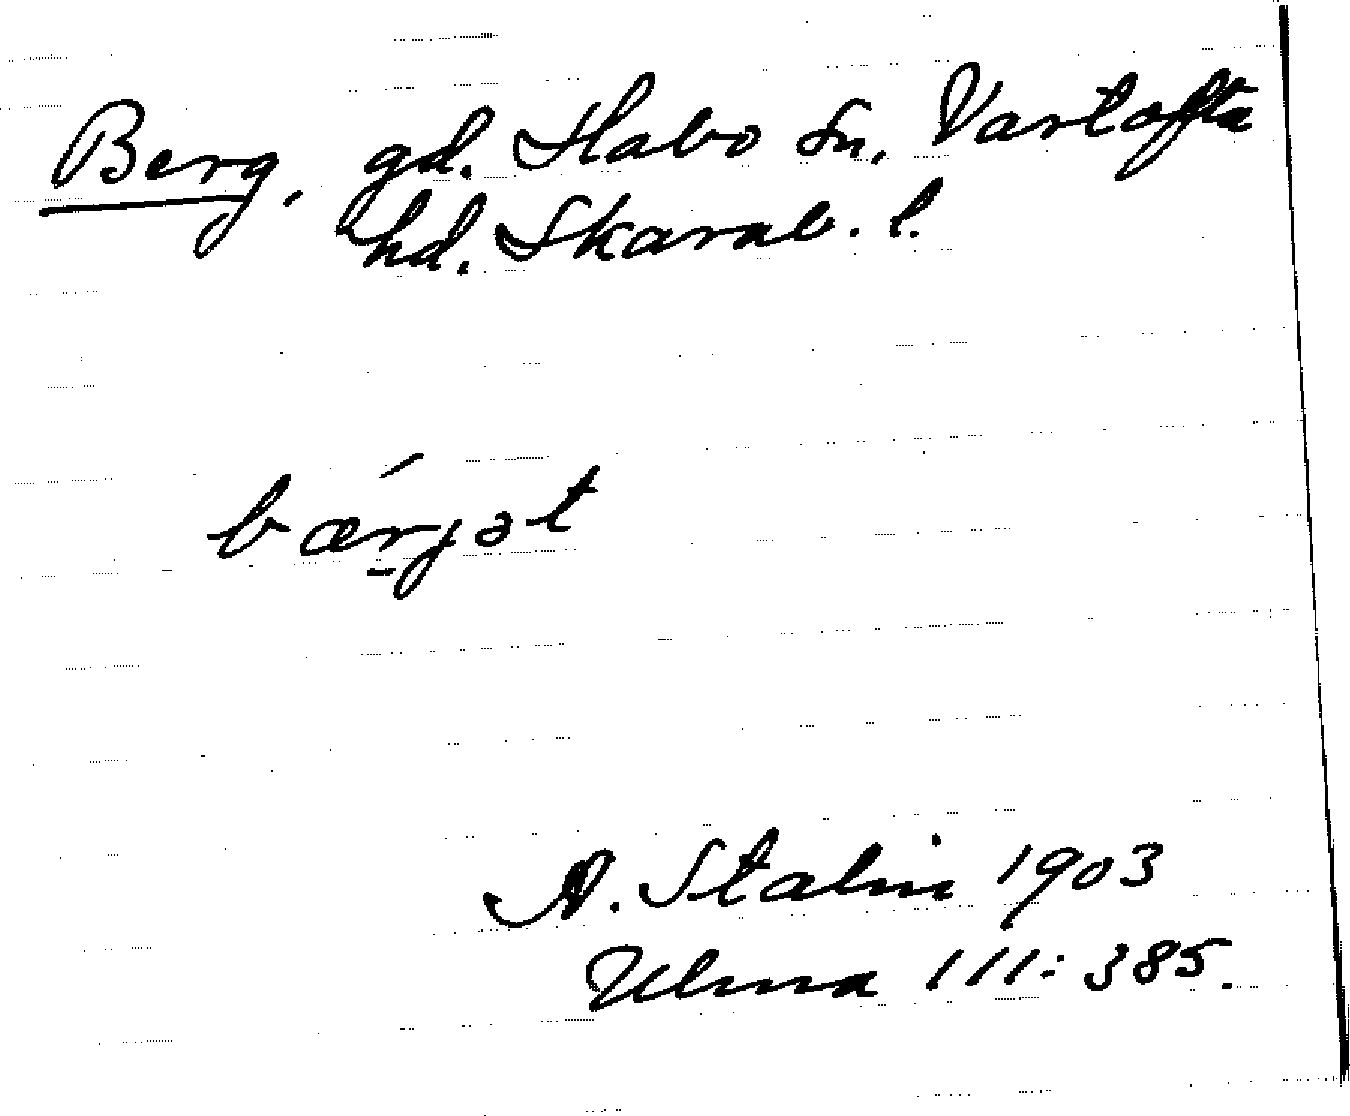 Berg, gd. Habo sn, Vartofta
hd. Skarab. l.
bærjət
N. Stalin 1903
Ulma 111:385.